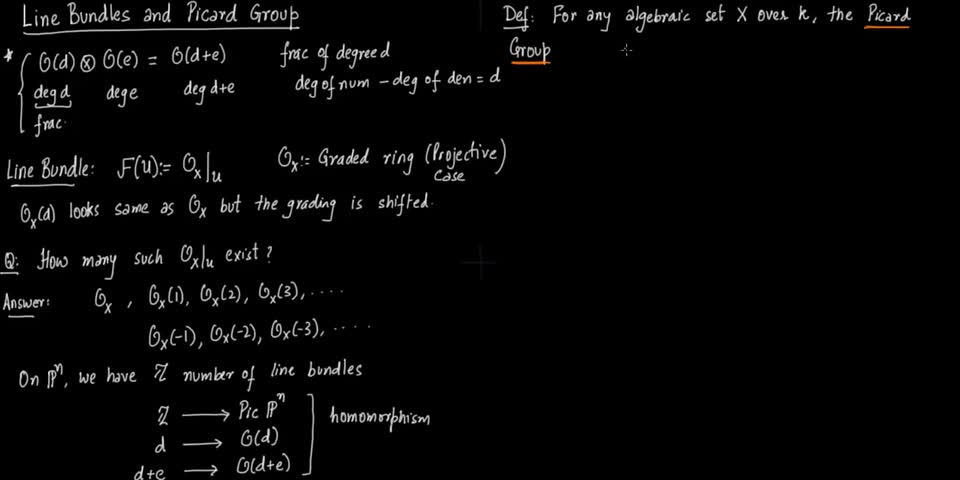 Line Bundles and Picard Group
* O(d) ⊗ O(e) = O(d+e) frac of degree d
deg d deg e deg d+e deg of num - deg of den = d
frac.
Line Bundle: F(U) := O_X|_U O_X := Graded ring (Projective case)
O_X(d) looks same as O_X but the grading is shifted.
Q: How many such O_X|_U exist?
Answer: O_X, O_X(1), O_X(2), O_X(3), ....
O_X(-1), O_X(-2), O_X(-3), ....
On ℙⁿ, we have ℤ number of line bundles
ℤ → Pic ℙⁿ
d → O(d) homomorphism
d+e → O(d+e)
Def: For any algebraic set X over k, the Picard
Group